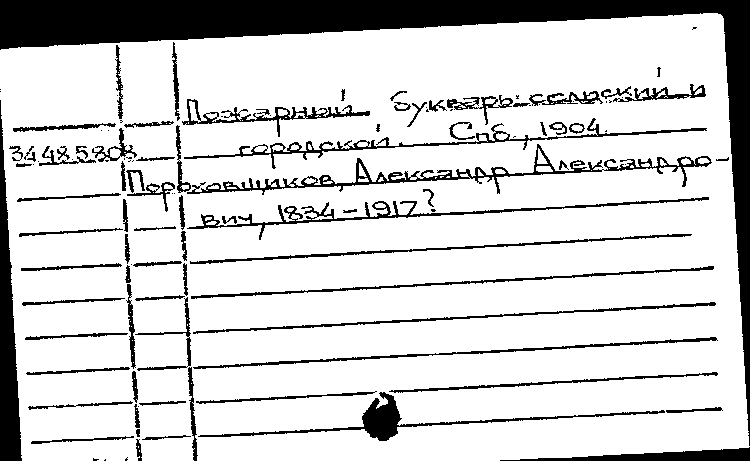 Пожарный букварь: сельский и
34485808 городской. Спб., 1904.
Пороховщиков, Александр Александро-
вич, 1834-1917?